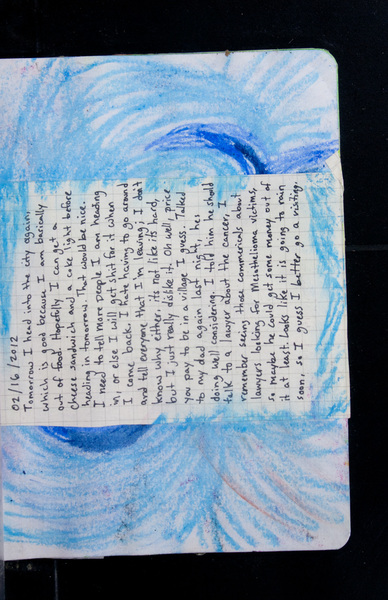 02/16/2012
Tomorrow I head into the city again,
which is good because I am basically
out of food. Hopefully I can get a
cheese sandwich and a coke light before
heading in tomorrow. That would be nice.
I need to tell more people I am heading
in, or else I will get shit for it when
I come back. I hate having to go around
and tell everyone that I'm leaving; I don't
know why either, its not like its hard,
but I just really dislike it. Oh well, price
you pay to be in a village I guess. Talked
to my dad again last night, hes
doing well considering. I told him he should
talk to a lawyer about the cancer, I
remember seeing those commericals about
lawyers looking for Masothelioma victims,
so maybe he could get some money out of
it at least. Looks like it is going to rain
soon, so I guess I better go a visiting.